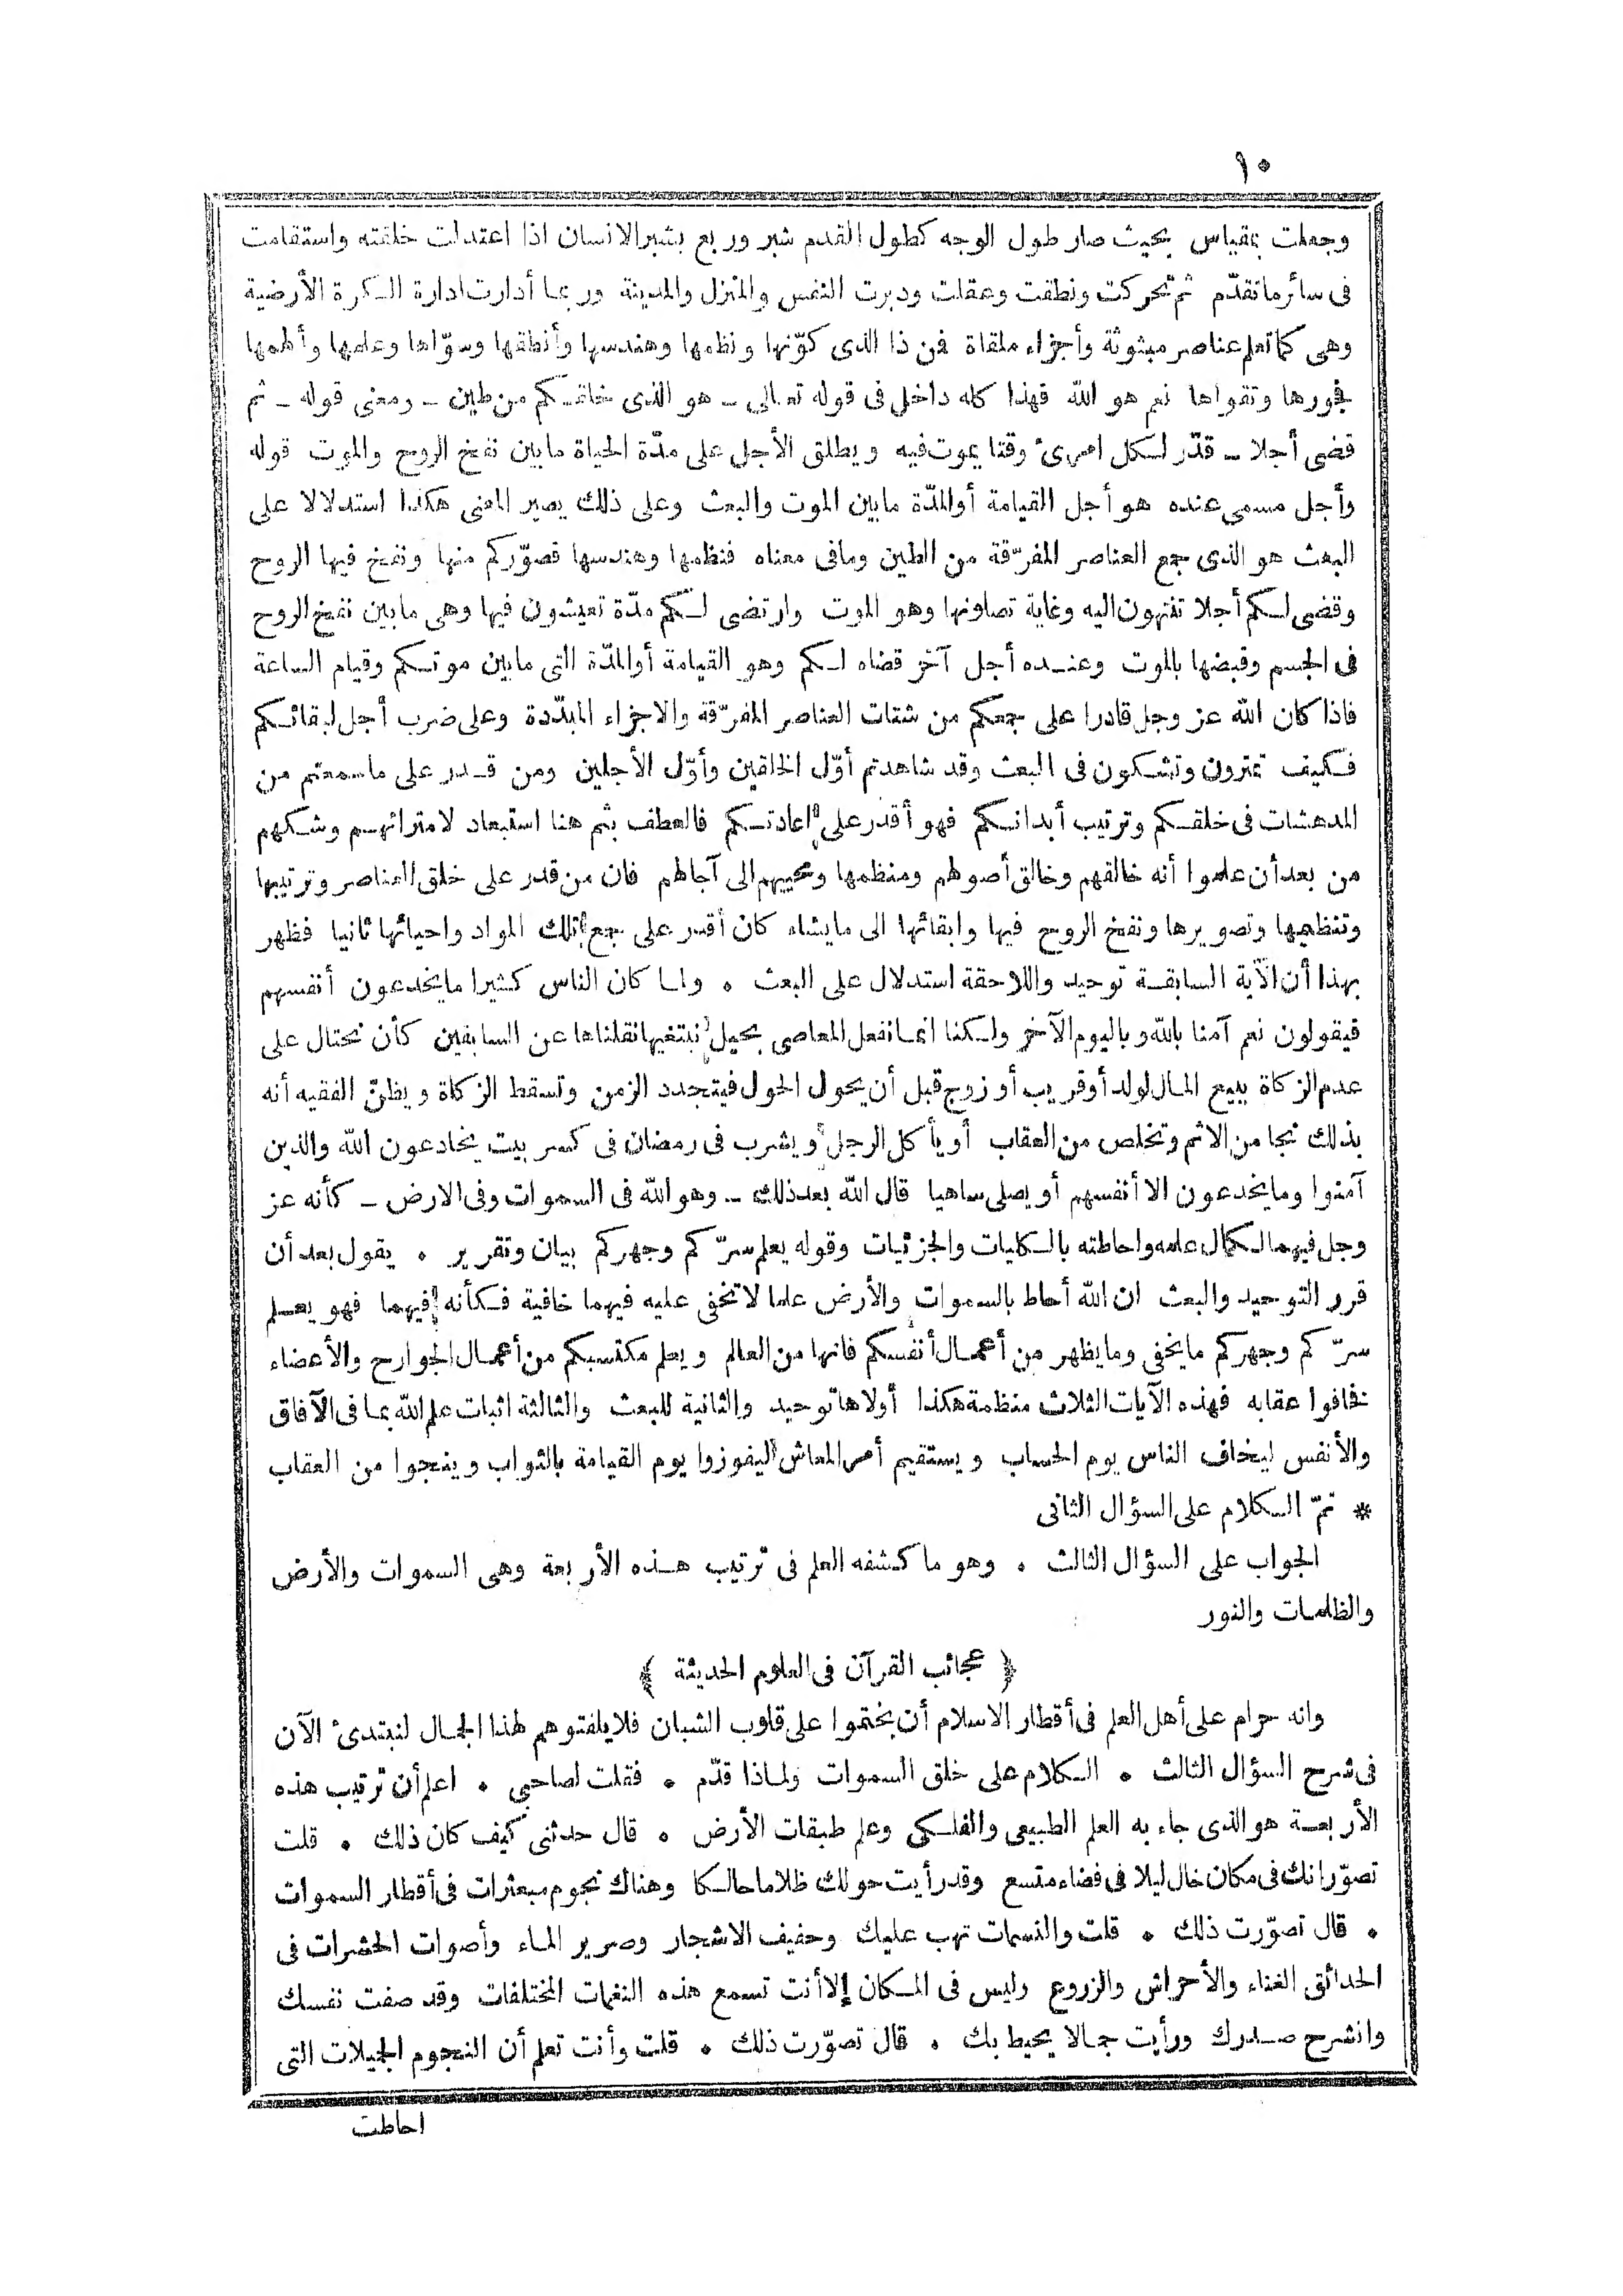 ١٠
وجعلت بمقياس بحيث صار طول الوجه كطول القدم شبر وربع بشبر الانسان اذا اعتدلت خلقته واستقامت
فى سائر ماتقدّم ثم تحركت ونطقت وعقلت ودبرت النفس والمنزل والمدينة وربما أدارت ادارة الكرة الأرضية
وهى كما تعلم عناصر مبثوثة وأجزاء ملقاة فمن ذا الذى كوّنها ونظمها وهندسها وأنطقها وسوّاها وعلمها وألهمها
فجورها وتقواها نعم هو الله فهذا كله داخل فى قوله تعالى ـ هو الذى خلقكم من طين ـ ومعنى قوله ـ ثم
قضى أجلا ـ قدّر لكل امرئ وقتا يموت فيه ويطلق الأجل على مدّة الحياة مابين نفخ الروح والموت قوله
وأجل مسمى عنده هو أجل القيامة أو المدّة مابين الموت والبعث وعلى ذلك يصير المعنى هكذا استدلالا على
البعث هو الذى جمع العناصر المفرّقة من الطين ومافى معناه فنظمها وهندسها فصوّركم منها ونفخ فيها الروح
وقضى لكم أجلا تنتهون اليه وغاية تصلونها وهو الموت وارتضى لكم مدّة تعيشون فيها وهى مابين نفخ الروح
فى الجسم وقبضها بالموت وعنده أجل آخر قضاه لكم وهو القيامة أو المدّة التى مابين موتكم وقيام الساعة
فاذا كان الله عز وجل قادرا على جمعكم من شتات العناصر المفرّقة والاجزاء المبدّدة وعلى ضرب أجل لبقائكم
فكيف تمترون وتشكون فى البعث وقد شاهدتم أوّل الخلقين وأوّل الأجلين ومن قدر على ماسمعتم من
المدهشات فى خلقكم وترتيب أبدانكم فهو أقدر على اعادتكم فالعطف بثم هنا استبعاد لامترائهم وشكهم
من بعد أن علموا أنه خالقهم وخالق أصولهم ومنظمها ومحييهم الى آجالهم فان من قدر على خلق العناصر وترتيبها
وتنظيمها وتصويرها ونفخ الروح فيها وابقائها الى مايشاء كان أقدر على جمع تلك المواد واحيائها ثانيا فظهر
بهذا أن الآية السابقة توحيد واللاحقة استدلال على البعث . ولما كان الناس كثيرا مايخدعون أنفسهم
فيقولون نعم آمنا بالله وباليوم الآخر ولكنا انما نفعل المعاصى بحيل نبتغيها نقلناها عن السابقين كأن نحتال على
عدم الزكاة ببيع المال لولد أو قريب أو زوج قبل أن يحول الحول فيتجدد الزمن وتسقط الزكاة ويظنّ الفقيه أنه
بذلك نجا من الاثم وتخلص من العقاب أو يأكل الرجل أو يشرب فى رمضان فى كسر بيت يخادعون الله والذين
آمنوا وما يخدعون الا أنفسهم أو يصلى ساهيا قال الله بعد ذلك ـ وهو الله فى السموات وفى الارض ـ كأنه عز
وجل فيهما لكمال علمه واحاطته بالكليات والجزئيات وقوله يعلم سرّكم وجهركم بيان وتقرير . يقول بعد أن
قرر التوحيد والبعث ان الله أحاط بالسموات والأرض علما لا تخفى عليه فيهما خافية فكأنه فيهما فهو يعلم
سرّكم وجهركم مايخفى ومايظهر من أعمال أنفسكم فانها من العالم ويعلم مكتسبكم من أعمال الجوارح والأعضاء
فخافوا عقابه فهذه الآيات الثلاث منظمة هكذا أولاها توحيد والثانية للبعث والثالثة اثبات علم الله بما فى الآفاق
والأنفس ليخاف الناس يوم الحساب ويستقيم أمر المعاش ليفوزوا يوم القيامة بالثواب وينجوا من العقاب
* تمّ الكلام على السؤال الثانى
الجواب على السؤال الثالث . وهو ما كشفه العلم فى ترتيب هذه الأربعة وهى السموات والأرض
والظلمات والنور
﴿ عجائب القرآن فى العلوم الحديثة ﴾
وانه حرام على أهل العلم فى أقطار الاسلام أن يختموا على قلوب الشبان فلا يلفتوهم لهذا الجمال لنبتدئ الآن
فى شرح السؤال الثالث . الكلام على خلق السموات ولماذا قدّم . فقلت لصاحبى . اعلم أن ترتيب هذه
الأربعة هو الذى جاء به العلم الطبيعى والفلكى وعلم طبقات الأرض . قال حدثنى كيف كان ذلك . قلت
تصوّر انك فى مكان خال ليلا فى فضاء متسع وقد رأيت حولك ظلاما حالكا وهناك نجوم مبعثرات فى أقطار السموات
. قال تصوّرت ذلك . قلت والنسمات تهب عليك وحفيف الاشجار وصرير الماء وأصوات الحشرات فى
الحدائق الغناء والأحراش والزروع وليس فى المكان إلا أنت تسمع هذه النغمات المختلفات وقد صفت نفسك
وانشرح صدرك ورأيت جمالا يحيط بك . قال تصوّرت ذلك . قلت وأنت تعلم أن النجوم الجميلات التى
احاطت